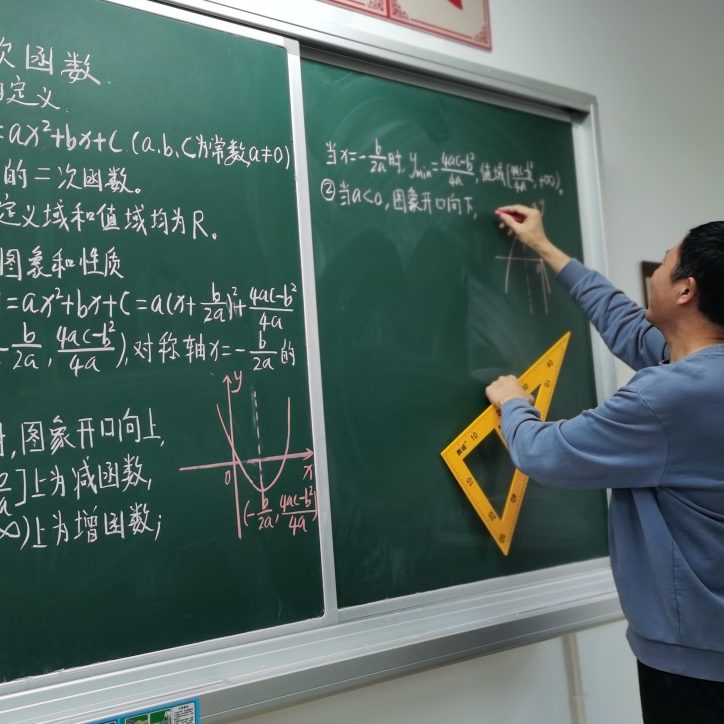 次函数
定义
=ax²+bx+c (a、b、c为常数,a≠0)
的二次函数。
定义域和值域均为R。
图象和性质
=ax²+bx+c=a(x+b/2a)²+4ac-b²/4a
-b/2a, 4ac-b²/4a),对称轴x=-b/2a的
时,图象开口向上,
]上为减函数,
∞)上为增函数;
y
0
x
(-b/2a, 4ac-b²/4a)
当x=-b/2a时,y min=4ac-b²/4a,值域[4ac-b²/4a,+∞)。
②当a<0,图象开口向下,
y
0
10